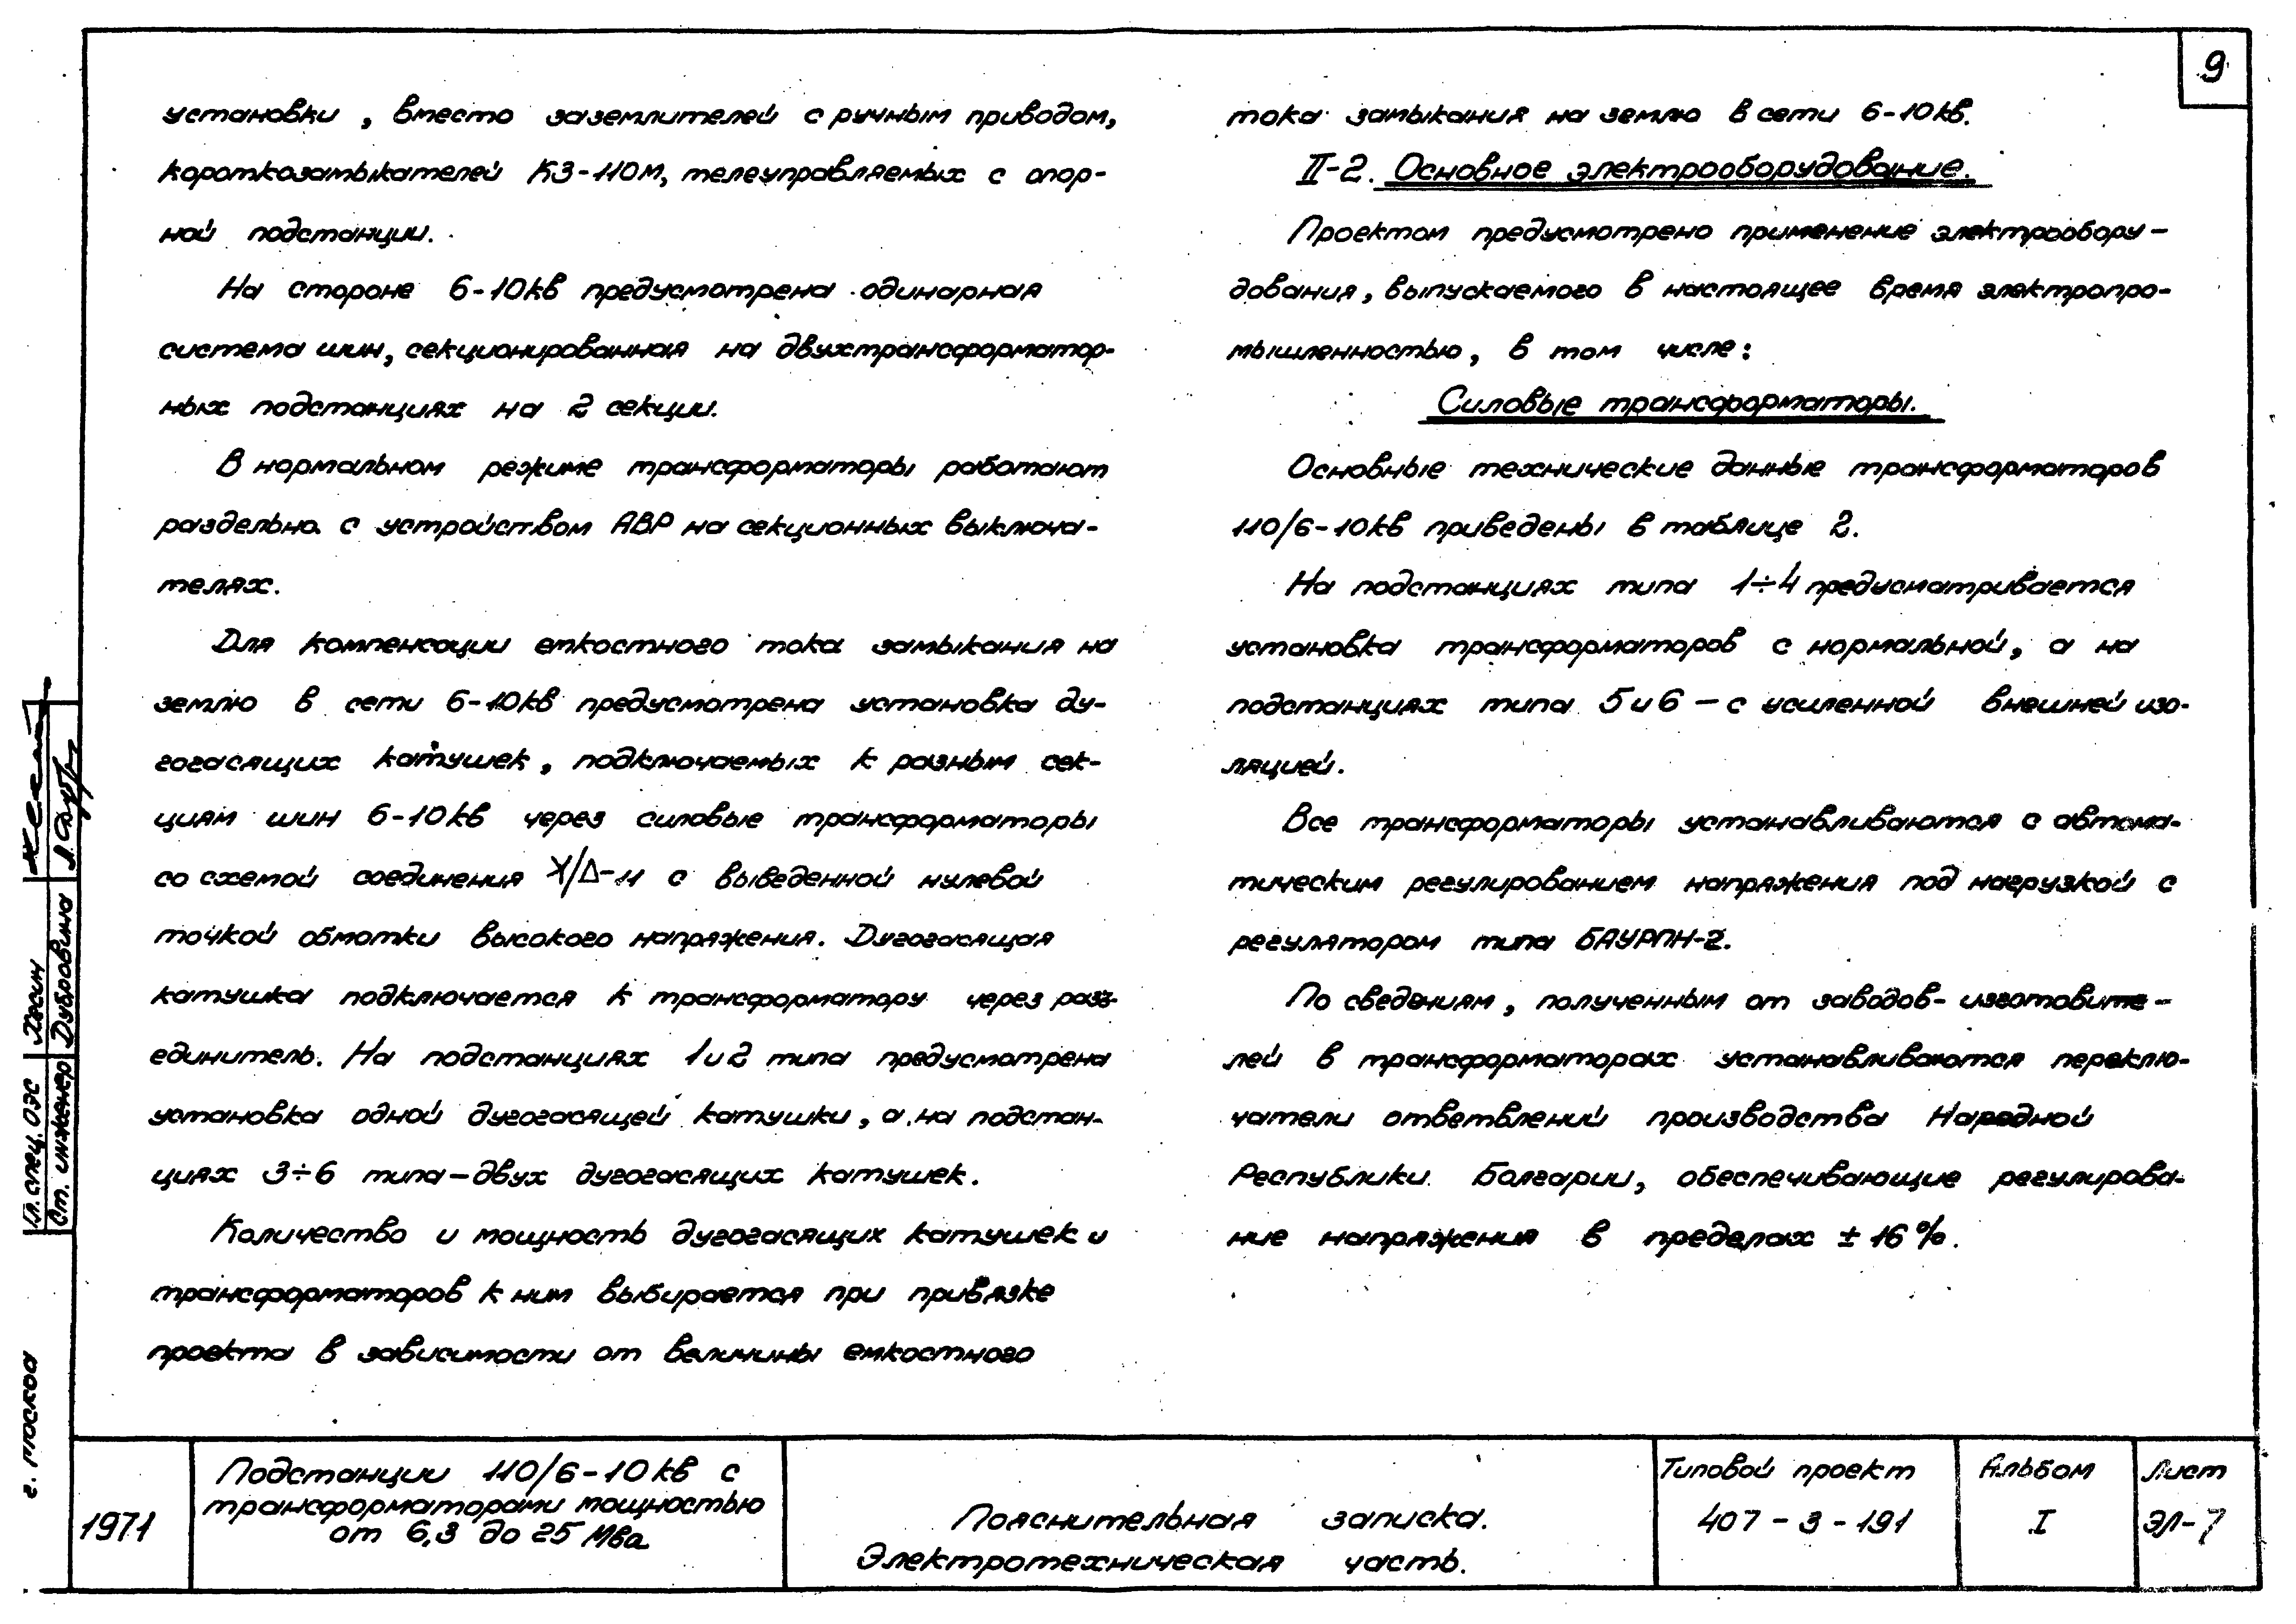 9
установки, вместо заземлителей с ручным приводом,
короткозамыкателей КЗ-110М, телеуправляемых с опор-
ной подстанции.
На стороне 6-10кв предусмотрена одинарная
система шин, секционированная на двухтрансформатор-
ных подстанциях на 2 секции.
В нормальном режиме трансформаторы работают
раздельно с устройством АВР на секционных выключа-
телях.
Для компенсации емкостного тока замыкания на
землю в сети 6-10кв предусмотрена установка ду-
гогасящих катушек, подключаемых к разным сек-
циям шин 6-10кв через силовые трансформаторы
со схемой соединения Y/Δ-11 с выведенной нулевой
точкой обмотки высокого напряжения. Дугогасящая
катушка подключается к трансформатору через разъ-
единитель. На подстанциях 1и2 типа предусмотрена
установка одной дугогасящей катушки, а на подстан-
циях 3÷6 типа-двух дугогасящих катушек.
Количество и мощность дугогасящих катушек и
трансформаторов к ним выбирается при привязке
проекта в зависимости от величины емкостного
тока замыкания на землю в сети 6-10кв.
II-2. Основное электрооборудование.
Проектом предусмотрено применение электрообору-
дования, выпускаемого в настоящее время электропро-
мышленностью, в том числе:
Силовые трансформаторы.
Основные технические данные трансформаторов
110/6-10кв приведены в таблице 2.
На подстанциях типа 1÷4 предусматривается
установка трансформаторов с нормальной, а на
подстанциях типа 5 и 6 - с усиленной внешней изо-
ляцией.
Все трансформаторы устанавливаются с автома-
тическим регулированием напряжения под нагрузкой с
регулятором типа БАУРПН-2.
По сведениям, полученным от заводов-изготовите-
лей в трансформаторах устанавливаются переклю-
чатели ответвлений производства Народной
Республики Болгарии, обеспечивающие регулирова-
ние напряжения в пределах ± 16%.
Гл.спец.ОЭС Хесин
Ст. инженер Дубровина
г. Москва
1971
Подстанции 110/6-10кв с
трансформаторами мощностью
от 6,3 до 25 Мва
Пояснительная записка.
Электротехническая часть.
Типовой проект
407-3-191
Альбом
I
Лист
ЭЛ-7